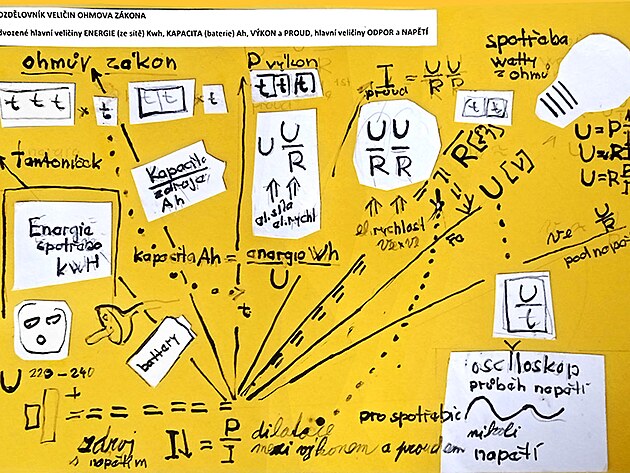 OZDĚLOVNÍK VELIČIN OHMOVA ZÁKONA
dvozené hlavní veličiny ENERGIE (ze sítě) Kwh, KAPACITA (baterie) Ah, VÝKON a PROUD, hlavní veličiny ODPOR a NAPĚTÍ
ohmův zákon
P výkon
I = U/R
proud
spotřeba
watty
z ohmů
t t t × t
t t × t
t t t
t t
tantoniček
Kapacita
zdroje
Ah
U U/R
el. síla
el. rychl
U U
R R
el. rychlost
R[Ω]
U[V]
U = P
U =
U = R
Energie
spotřeba
kWH
kapacita Ah = energie Wh / U
t
U/R
pod napětí
U/t
battery
U 220-240
osciloskop
průběh napětí
nikoli
napětí
pro spotřebič
+
zdroj
s napětím
I = P/I
mezi výkonem a proudem